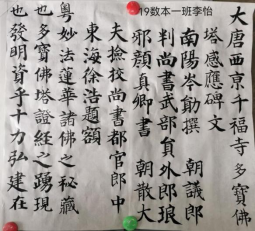 19数本一班李怡
大唐西京千福寺多寶佛
塔感應碑文
南陽岑勛撰 朝議郎
判尚書武部員外郎琅
邪顏真卿書 朝散大
夫撿校尚書都官郎中
東海徐浩題額
粵妙法蓮華諸佛之秘藏
也多寶佛塔證經之踴現
也發明資乎十力弘建在